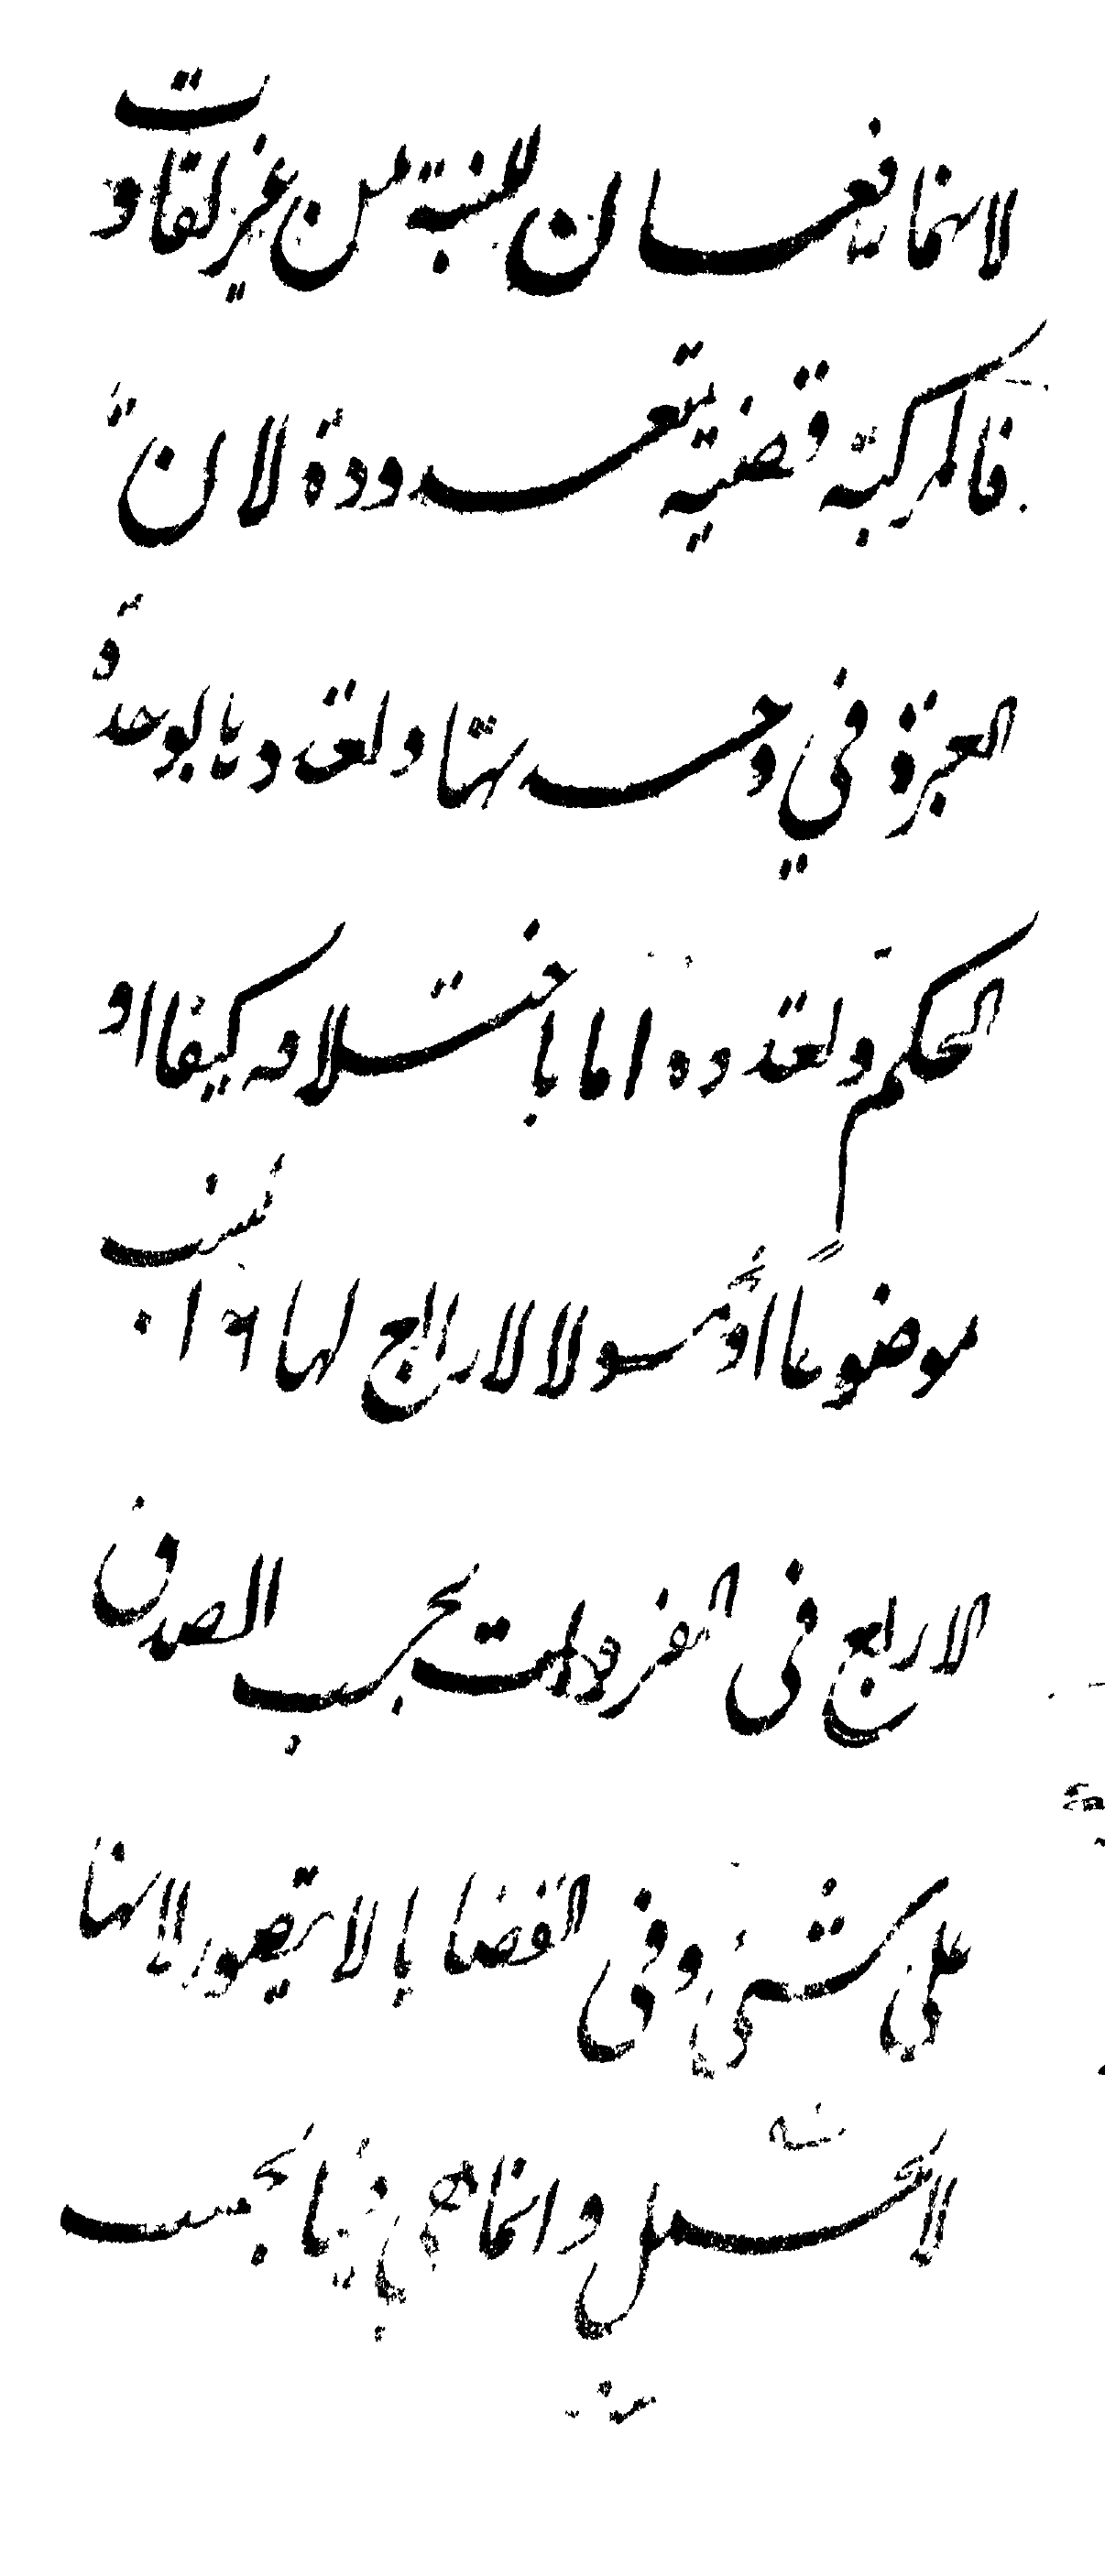 لانهما يرفعان النسبة من غير تفاوت
فالمركبة قضية متعددة لان
العبرة في وحدتها وتعددها بوحدة
الحكم وتعدده اما باختلافه كيفا او
موضوعا او محمولا لا رابع لها ا
لا رابع في المفردات بحسب الصدق
على شيء وفي القضايا لا يتصور لانها
لا تحمل وانما هي فيها بحسب